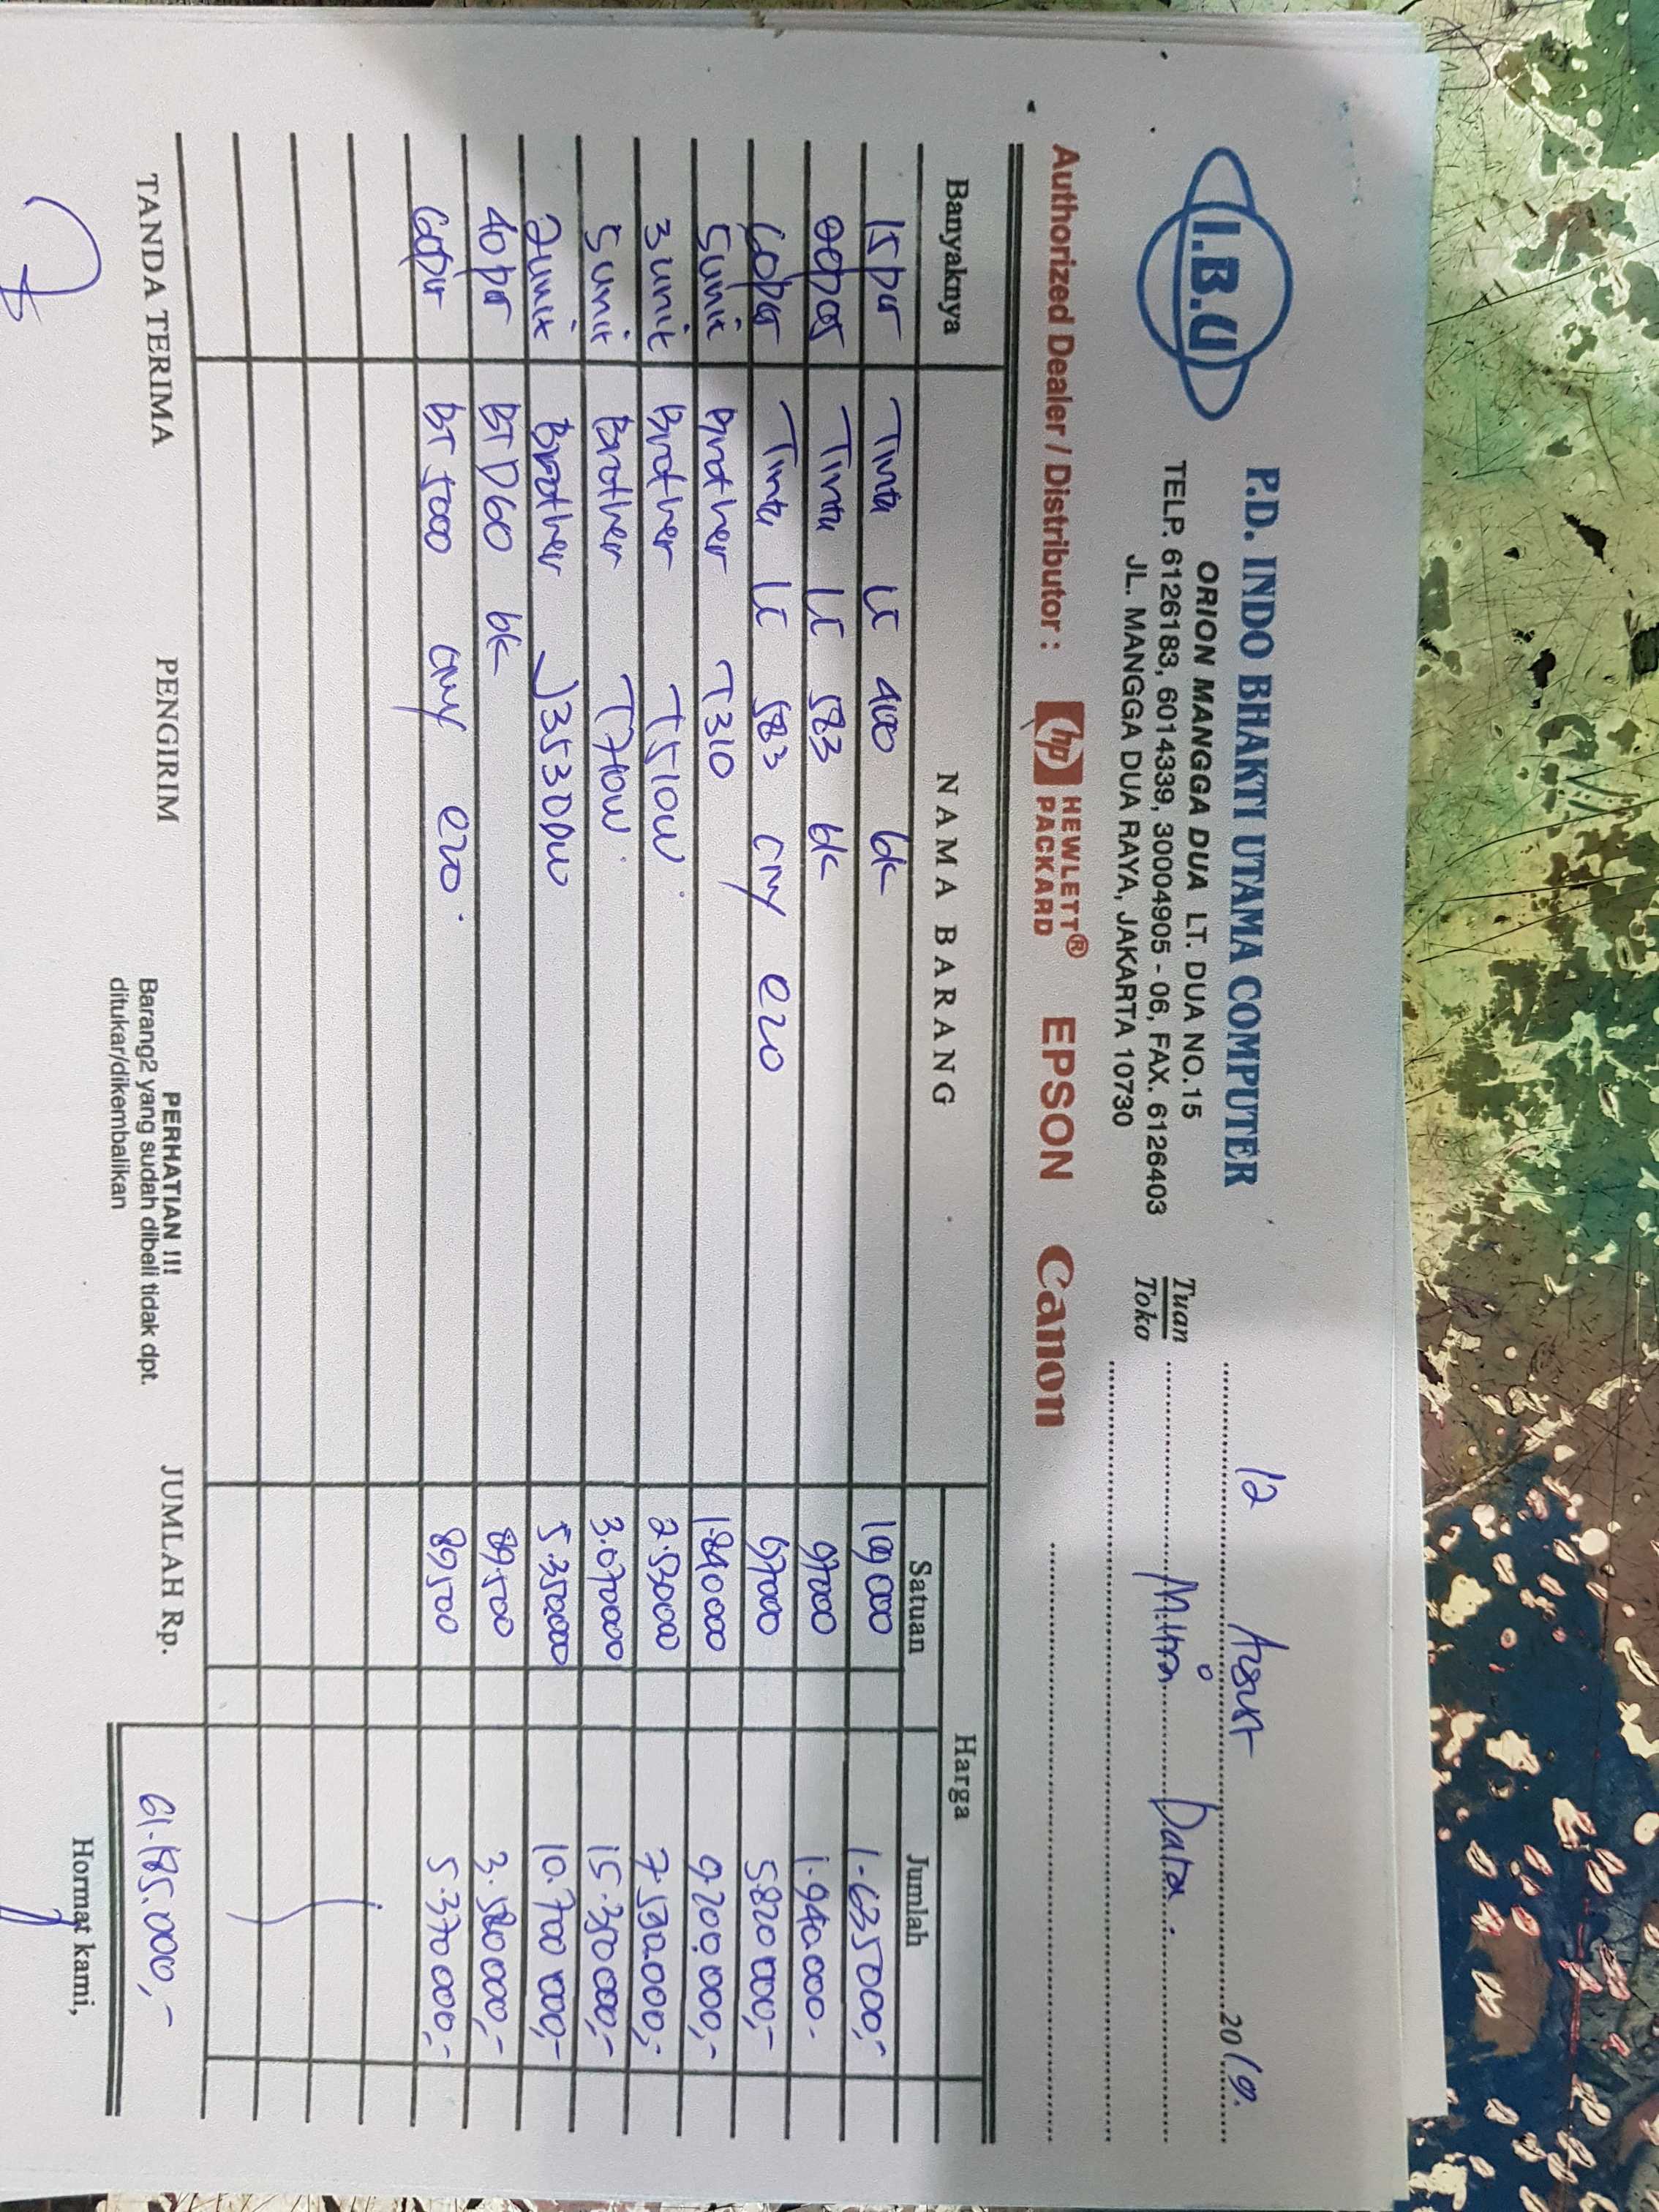 I.B.U
P.D. INDO BHAKTI UTAMA COMPUTER
ORION MANGGA DUA LT. DUA NO.15
TELP. 6126183, 6014339, 30004905 - 06, FAX. 6126403
JL. MANGGA DUA RAYA, JAKARTA 10730
12 Agust 2019.
Tuan
Toko
Mitra Data.
Authorized Dealer / Distributor : hp HEWLETT® PACKARD EPSON Canon
Banyaknya NAMA BARANG Harga
Satuan Jumlah
15 pcs Tinta LC 400 bk 109 000 1.635 000,-
20 pcs Tinta LC 583 bk 97000 1.940.000.-
60 pcs Tinta LC 583 cmy @20 97000 5.820 000,-
5 unit Brother T310 1.840 000 9.200.000,-
3 unit Brother T510W 2.530000 7.590.000,-
5 unit Brother T710W 3.070000 15.350 000,-
2 unit Brother J3530DW 5.350.000 10.700 000,-
40 pcs BTD60 bk 89.500 3.580 000,-
60 pcs BT 5000 cmy @20 89,500 5.370 000,-
TANDA TERIMA PENGIRIM
PERHATIAN !!!
Barang2 yang sudah dibeli tidak dpt.
ditukar/dikembalikan
JUMLAH Rp. 61.185.000,-
Hormat kami,